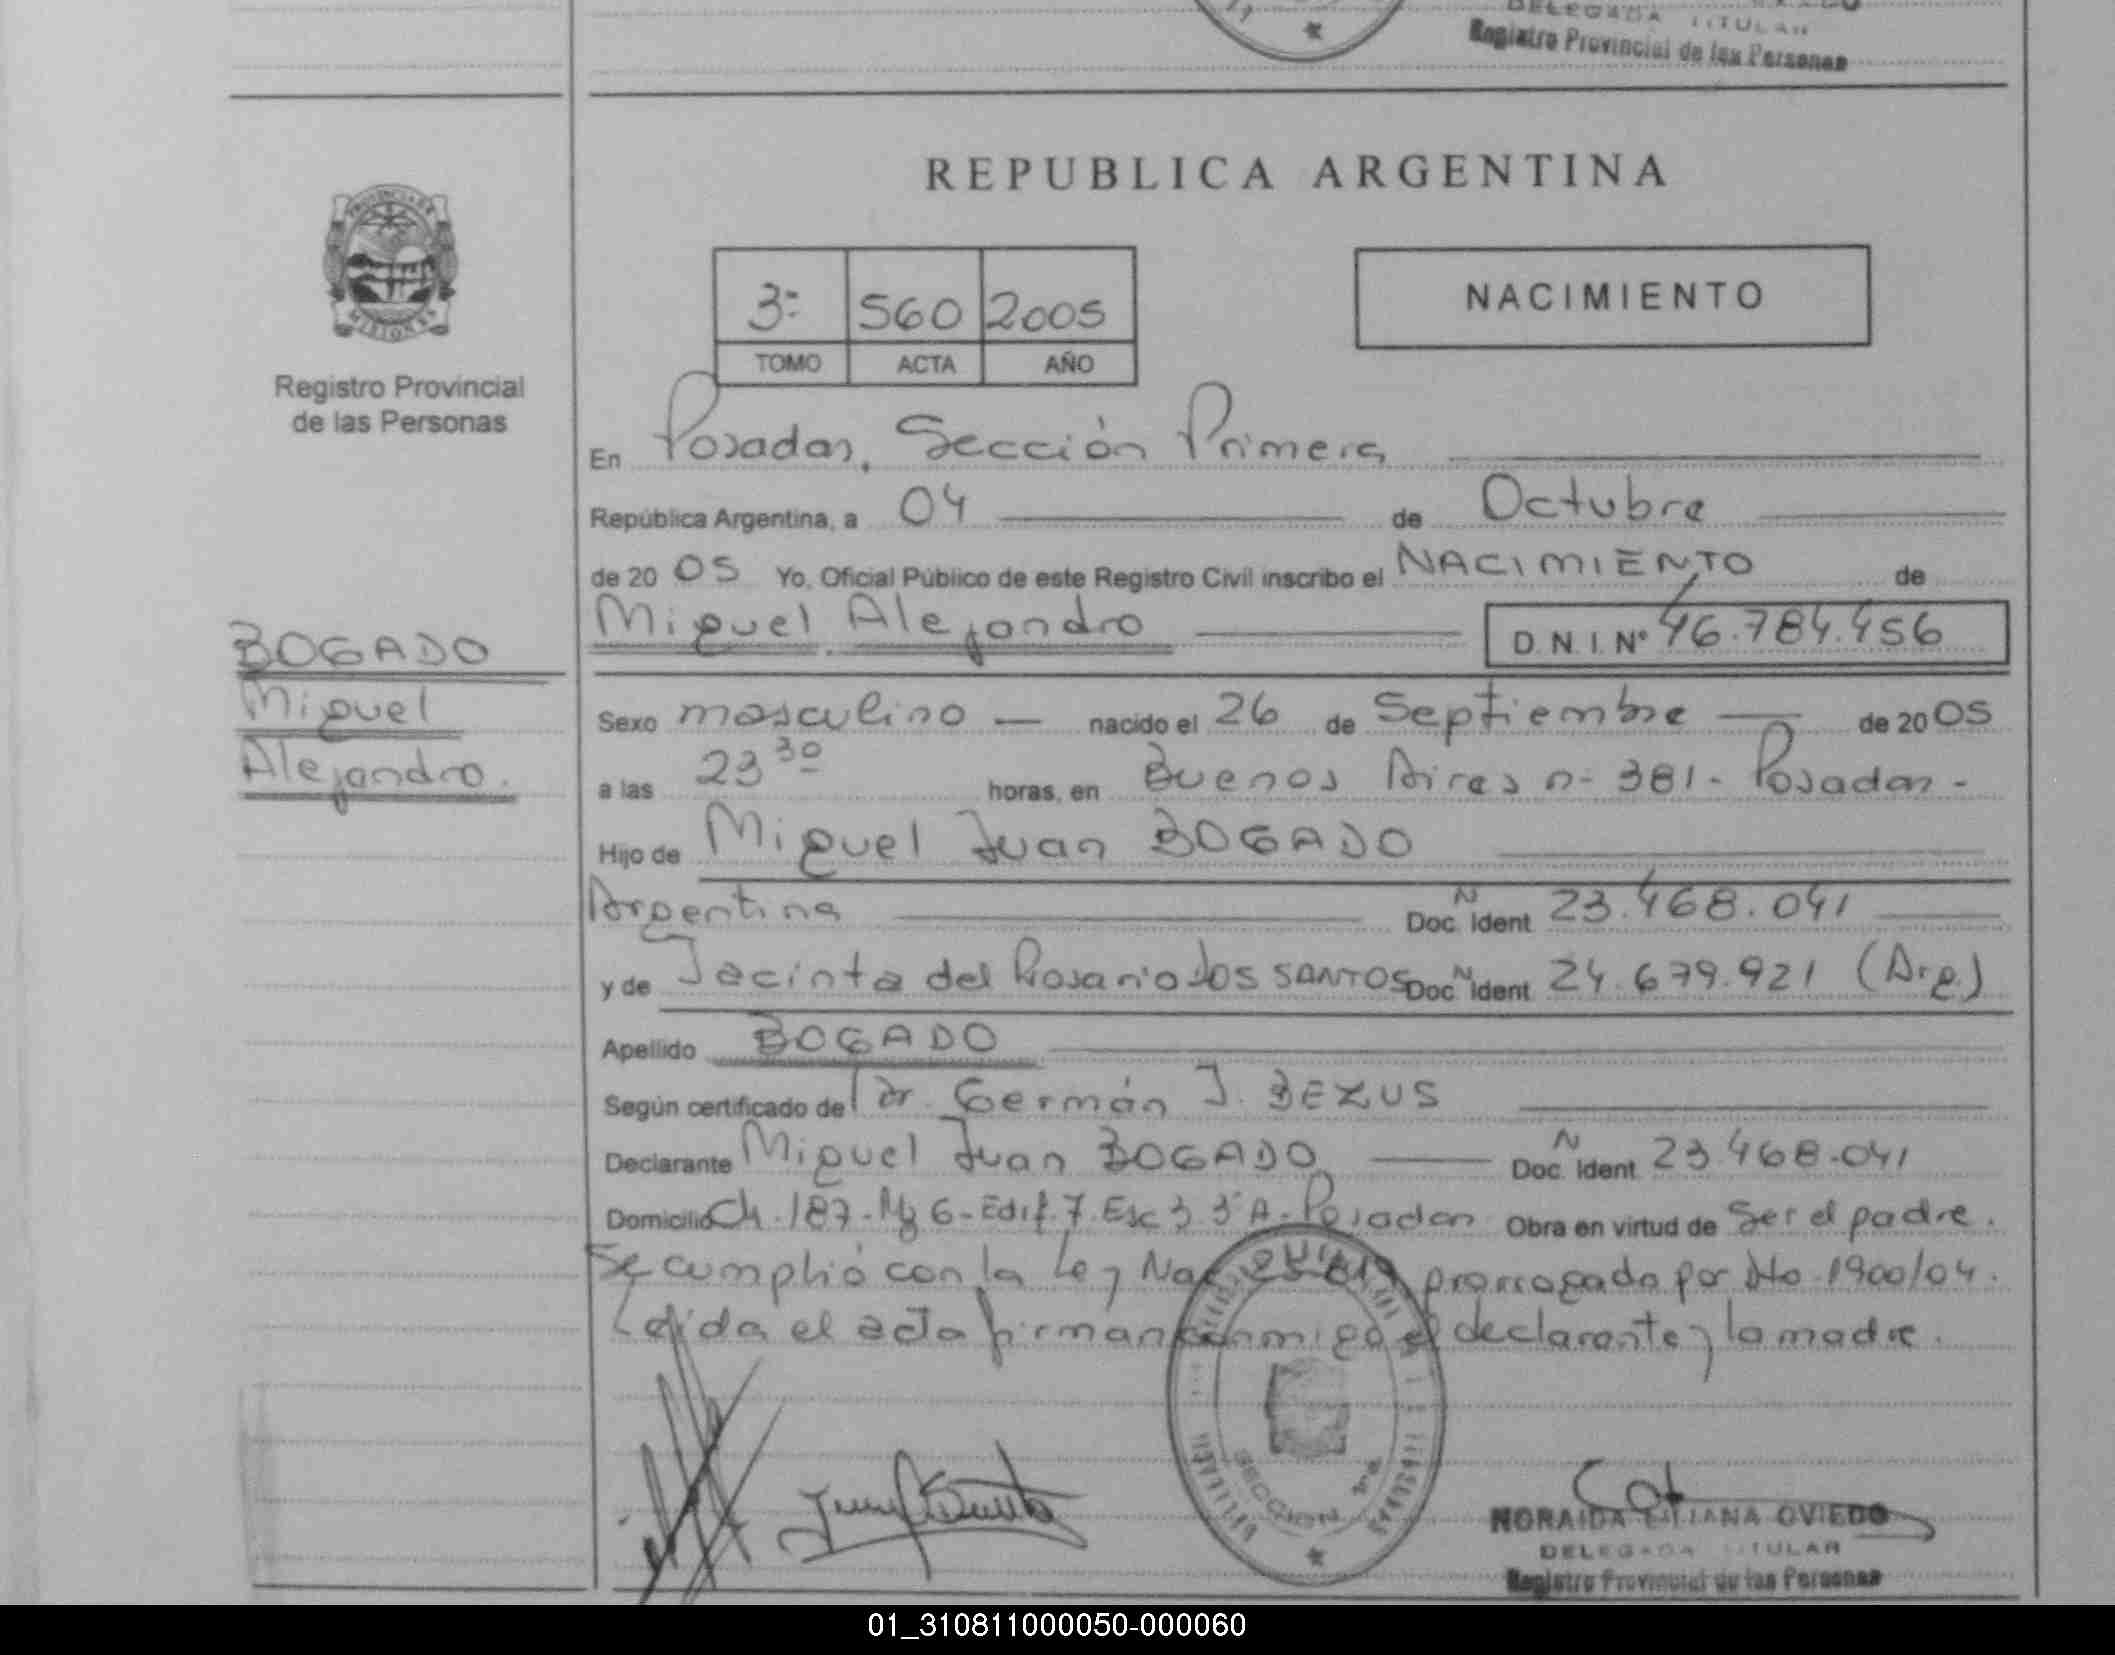 DELEGADA TITULAR
Registro Provincial de las Personas
REPUBLICA ARGENTINA
PROVINCIA DE
MISIONES
Registro Provincial
de las Personas
3º 560 2005
TOMO ACTA AÑO
NACIMIENTO
En Posadas, Sección Primera
República Argentina, a 04 de Octubre
de 2005 Yo, Oficial Público de este Registro Civil inscribo el NACIMIENTO de
Miguel Alejandro D.N.I. Nº 46.784.456
BOGADO
Miguel
Alejandro.
Sexo masculino — nacido el 26 de Septiembre — de 2005
a las 23 30 horas, en Buenos Aires nº 381 - Posadas -
Hijo de Miguel Juan BOGADO
Argentina Doc. N Ident 23.468.041
y de Jacinta del Rosario dos SANTOS Doc. N Ident 24.679.921 (Arg.)
Apellido BOGADO
Según certificado del Dr. Germán J. BEZUS
Declarante Miguel Juan BOGADO — Doc. N Ident. 23.468.041
Domicilio Ch. 187 - Mz 6 - Edif. 7. Esc 3 3º A - Posadas Obra en virtud de Ser el padre.
Se cumplió con la Ley Nac prorrogada por Dto. 1900/04.
Leída el acta firman conmigo el declarante y la madre.
SECCION 1ra
NORAIDA LILIANA OVIEDO
DELEGADA TITULAR
Registro Provincial de las Personas
01_310811000050-000060